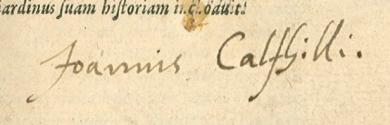 iardinus suam historiam inchoauit.
Joannis Calfhilli.